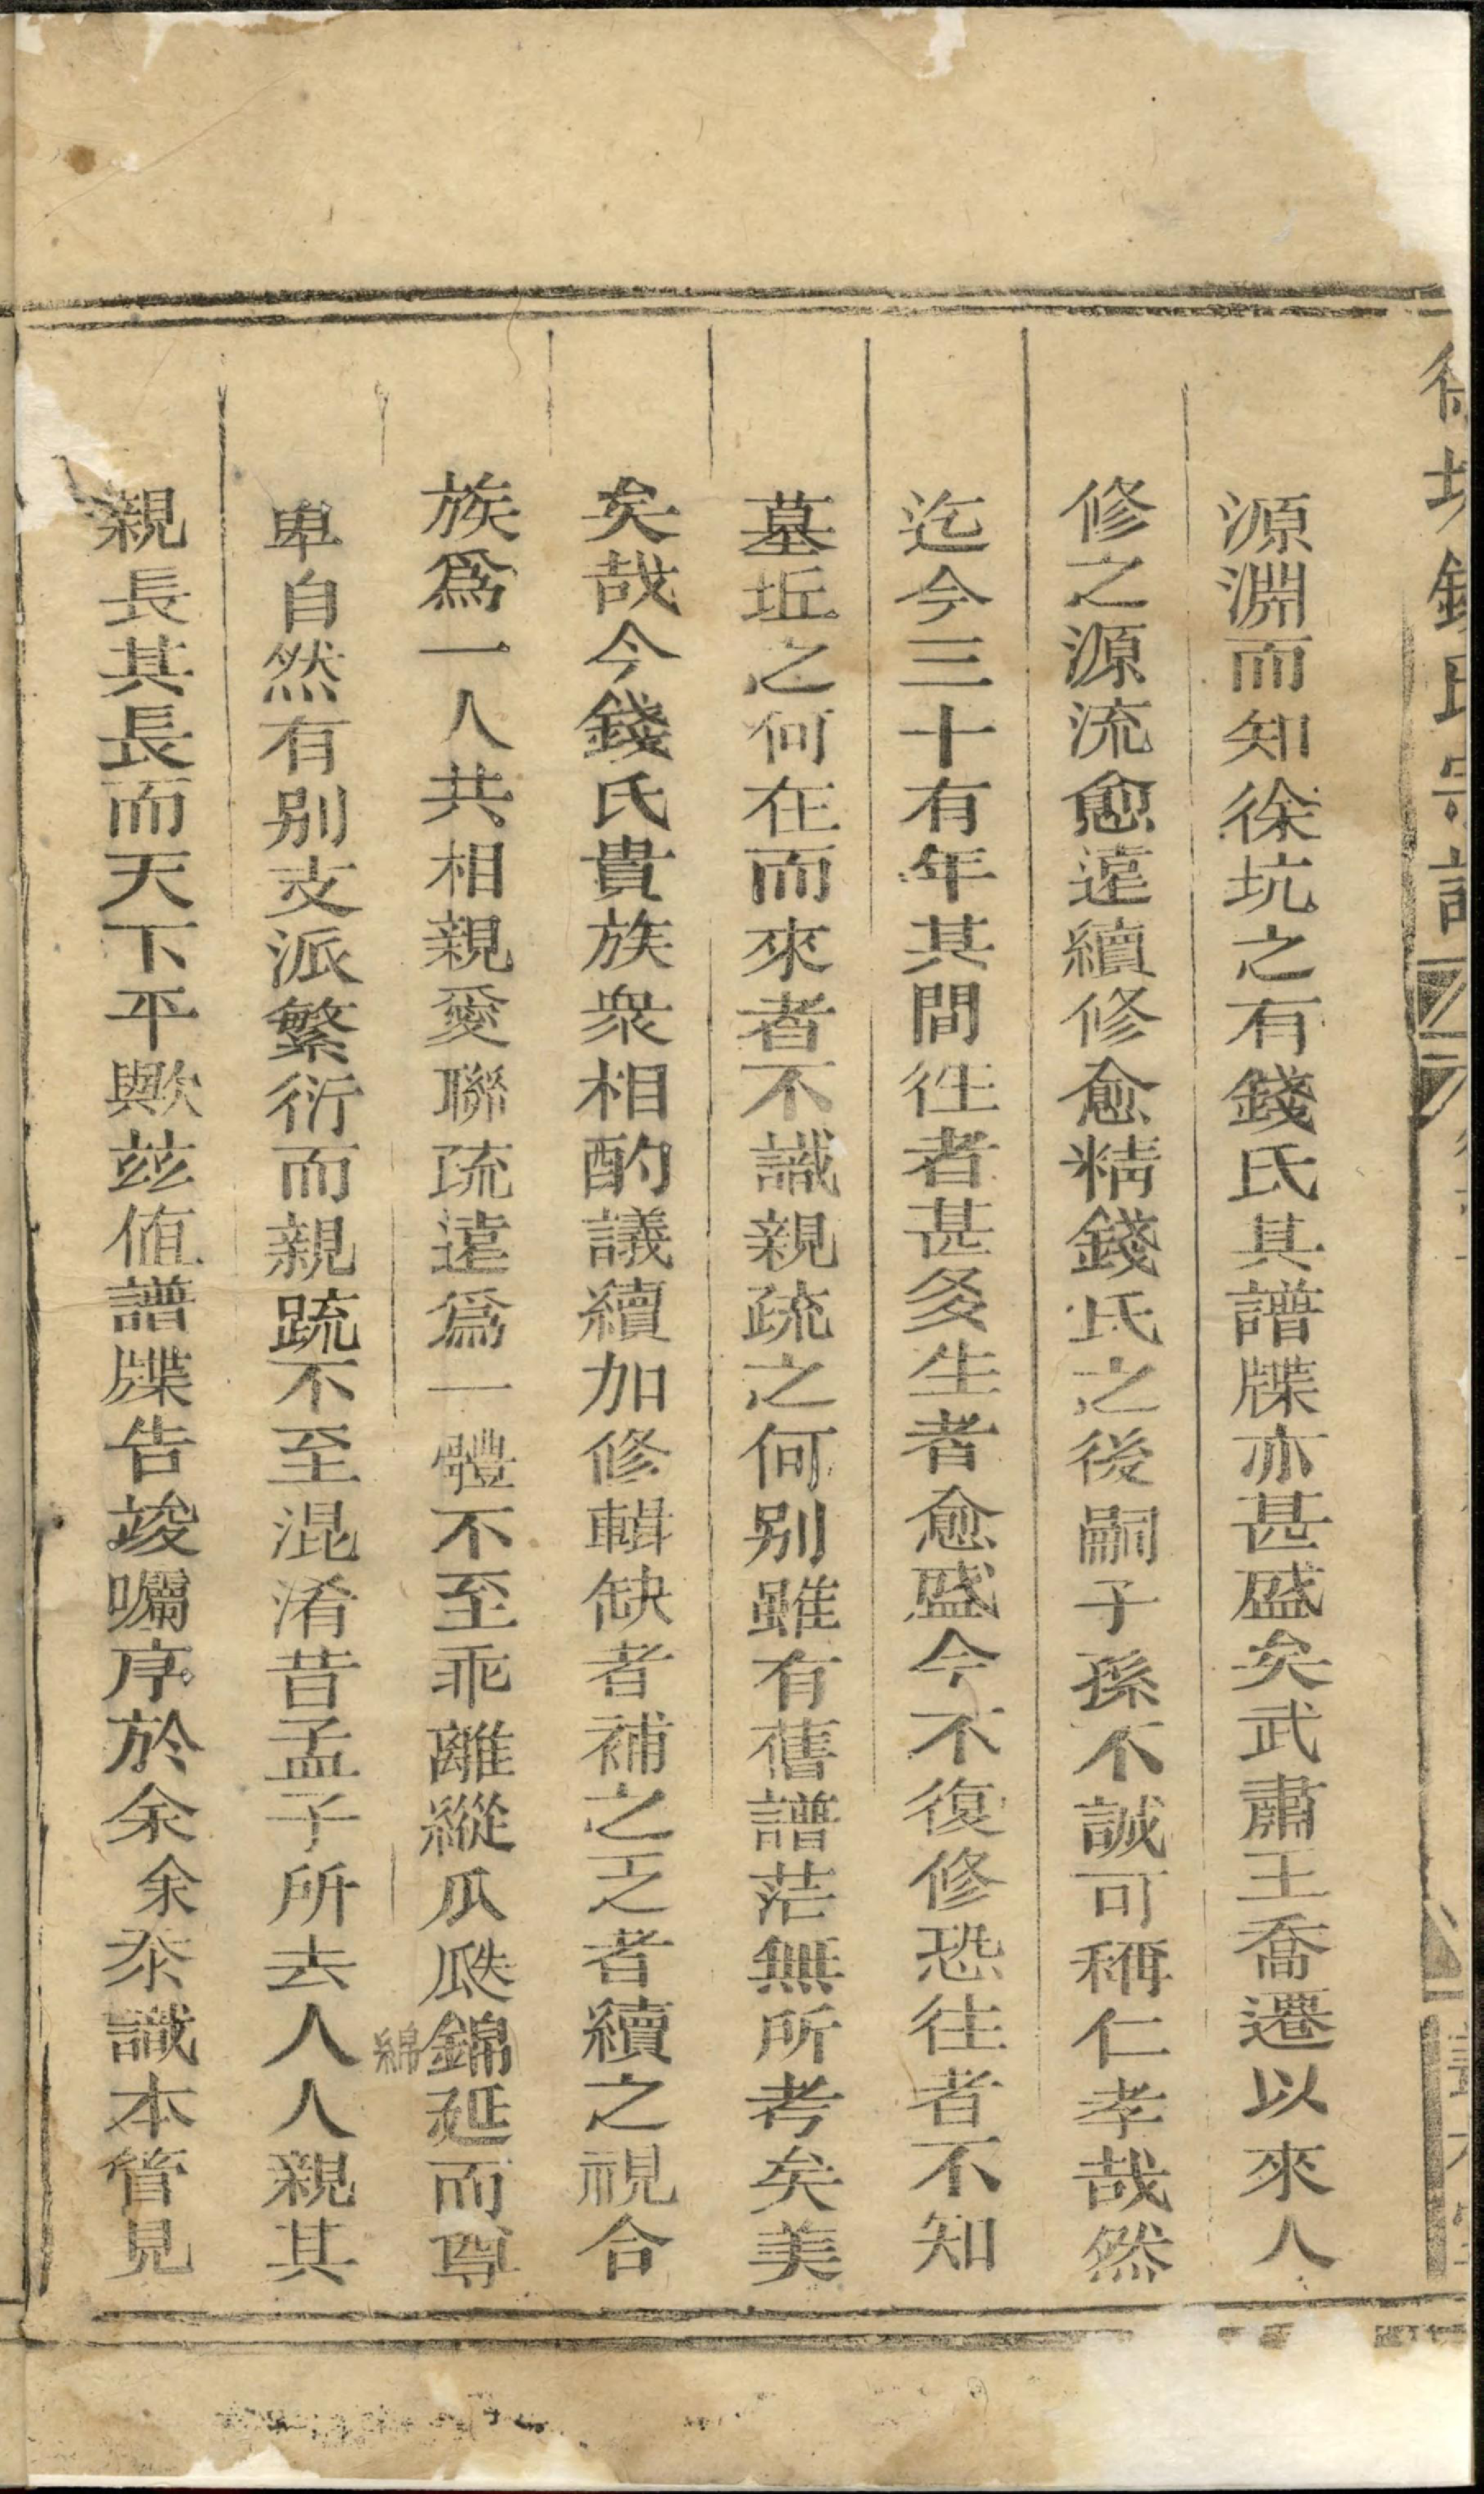 徐坑錢氏宗譜
源淵而知徐坑之有錢氏其譜牒亦甚盛矣武肅王喬遷以來人
修之源流愈遠續修愈精錢氏之後嗣子孫不誠可稱仁孝哉然
迄今三十有年其間徃者甚多生者愈盛今不復修恐往者不知
墓坵之何在而來者不識親疏之何別雖有舊譜茫無所考矣美
矣哉今錢氏貴族衆相酌議續加修輯缺者補之乏者續之視合
族爲一人共相親愛聯疏遠爲一體不至乖離縱瓜瓞錦延而尊
綿
卑自然有別支派繁衍而親踈不至混淆昔孟子所去人人親其
親長其長而天下平歟兹值譜牒告竣囑序於余余忝識本管見